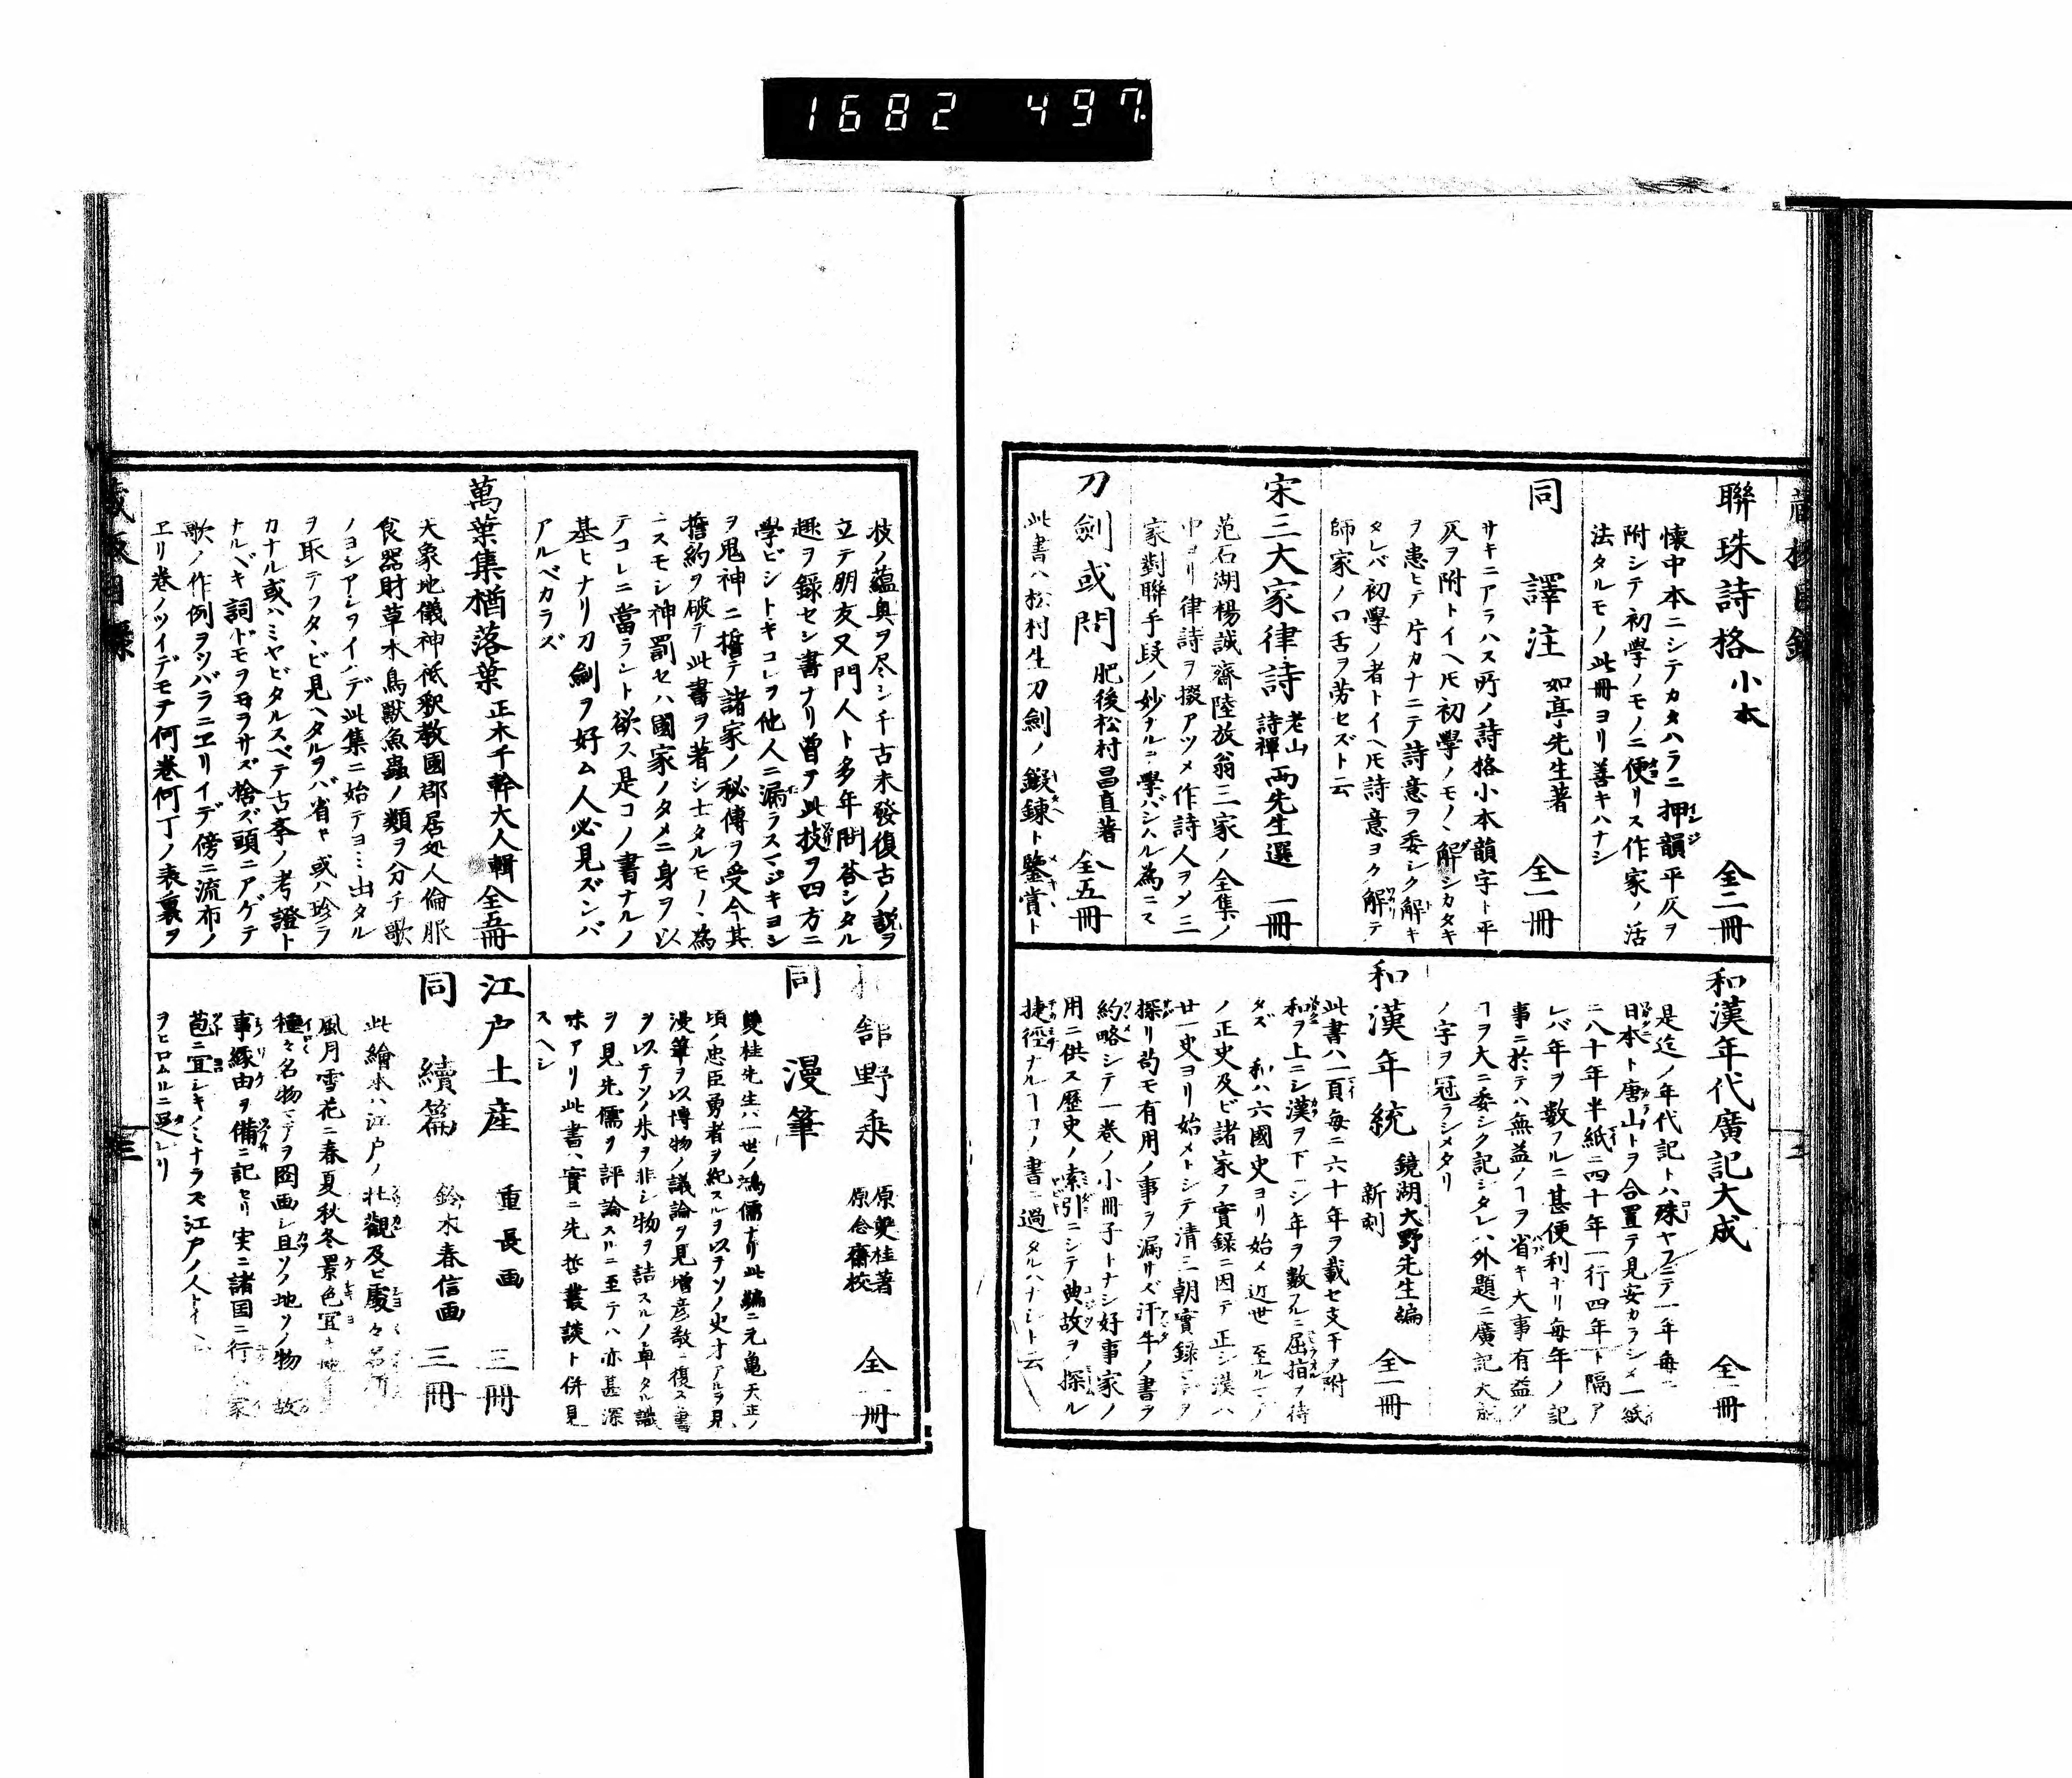 1682 497.
聯珠詩格小本 全二冊
懷中本ニシテカタハラニ押韻平仄ヲ
附シテ初學ノモノニ便リス作家ノ活
法タルモノ此冊ヨリ善キハナシ
同 譯注 如亭先生著 全一冊
サキニアラハス所ノ詩格小本韻字ト平
仄ヲ附トイヘ𪜈初學ノモノヽ解シカタキ
ヲ患ヒテ片カナニテ詩意ヲ委シク解キ
タレバ初學ノ者トイヘ𪜈詩意ヨク解テ
師家ノ口舌ヲ労セズト云
宋三大家律詩 老山 詩禪 両先生選 一冊
范石湖楊誠齋陸放翁三家ノ全集ノ
中ヨリ律詩ヲ掇アツメ作詩人ヲメ三
家對聯手段ノ妙ナルニ學バシムル為ニス
刀劍或問 肥後松村昌直著 全五冊
此書ハ松村生刀劍ノ鍛錬ト鑒賞ト
和漢年代廣記大成 全一冊
是迄ノ年代記トハ殊ヤフニテ一年毎ニ
日本ト唐山トヲ合置テ見安カラシメ一紙
ニ八十年半紙ニ四十年一行四年ト隔ア
レバ年ヲ數フルニ甚便利ナリ毎年ノ記
事ニ於テハ無益ノヿヲ省キ大事有益ノ
ヿヲ大ニ委シク記シタレハ外題ニ廣記大成
ノ字ヲ冠ラシメタリ
和漢年統 鏡湖大野先生編 新刻 全一冊
此書ハ一頁毎ニ六十年ヲ載セ支干ヲ附
和ヲ上ニシ漢ヲ下ニシ年ヲ數フルニ屈指ヲ待
タズ 和ハ六國史ヨリ始メ近世 至ルマテノ
ノ正史及ビ諸家ノ實録ニ因テ正シ漢ハ
廿一史ヨリ始メトシテ清三朝實録
探リ苟モ有用ノ事ヲ漏サズ汗牛ノ書ヲ
約略シテ一巻ノ小冊子トナシ好事家ノ
用ニ供ス歷史ノ索引ニシテ典故ヲ探ル
捷徑ナルヿコノ書ニ過タルハナシト云
技ノ蘊奥ヲ尽シ千古未發復古ノ説ヲ
立テ朋友又門人ト多年問答シタル
趣ヲ録セシ書ナリ曽テ此技ヲ四方ニ
學ビシトキコレヲ他人ニ漏ラスマジキヨシ
ヲ鬼神ニ誓テ諸家ノ秘傳ヲ受今其
誓約ヲ破テ此書ヲ著シ士タルモノヽ為
ニスモシ神罰セハ國家ノタメニ身ヲ以
テコレニ當ラント欲ス是コノ書ナルノ
基ヒナリ刀劍ヲ好ム人必見ズンバ
アルベカラズ
萬葉集楢落葉 正木千幹大人輯 全五冊
天象地儀神祇釈教國郡居処人倫服
食器財草木鳥獣魚蟲ノ類ヲ分チ歌
ノヨシアシヲイハデ此集ニ始テヨミ出タル
ヲ取テフタヽビ見ヘタルヲバ省キ或ハ珍ラ
カナル或ハミヤビタルスベテ古事ノ考證ト
ナルベキ詞ドモヲモラサズ捨ズ頭ニアゲテ
歌ノ作例ヲツバラニヱリイデ傍ニ流布ノ
ヱリ巻ノツイデモテ何巻何丁ノ表裏ヲ
舘野乗 原雙桂著 原念齋校 全一冊
同 漫筆
雙桂先生ハ一世ノ鴻儒ナリ此編ニ元亀天正ノ
頃ノ忠臣勇者ヲ紀スルヲ以テソノ史才アルヲ見
漫筆ヲ以博物ノ議論ヲ見増彦敬ニ復スル書
ヲ以テソノ朱ヲ非シ物ヲ詰スルノ卓タル識
ヲ見先儒ヲ評論スルニ至テハ亦甚深
味アリ此書ハ實ニ先哲叢談ト併見
スヘシ
江戸土産 重長画 三冊
同 續篇 鈴木春信画 三冊
此繪本ハ江戸ノ壮觀及ヒ處々名所
風月雪花ニ春夏秋冬景色宜キ
種々名物マデヲ圖画シ且ソノ地ソノ物 故
事縁由ヲ備ニ記セリ実ニ諸国ニ行 家
苞ニ宜シキノミナラズ江戸ノ人トイヘ
ヲヒロムルニ足レリ
三